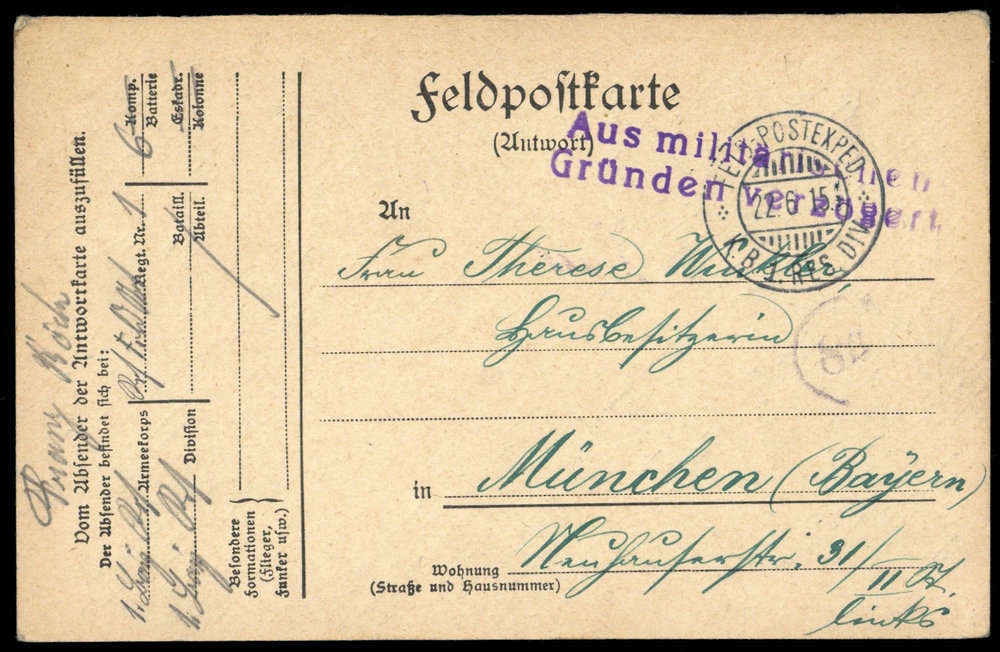 Feldpostkarte
(Antwort)
Aus militärischen
Gründen verzögert
FELD-POSTEXPED.
22.6.15
K.B. 1. RES. DIV.
An
Frau Therese Winkler,
Hausbesitzerin
in München (Bayern)
Wohnung
(Straße und Hausnummer)
Neuhauserstr. 31/
II St.
links
Franz
Vom Absender der Antwortkarte auszufüllen.
Der Absender befindet sich bei:
1. Armeekorps
Regt. Nr. 1
6 Komp.
Batterie
1. Division
Bataill.
Abteil.
Eskadr.
Kolonne
Besondere
Formationen
(Flieger,
Funker usw.)